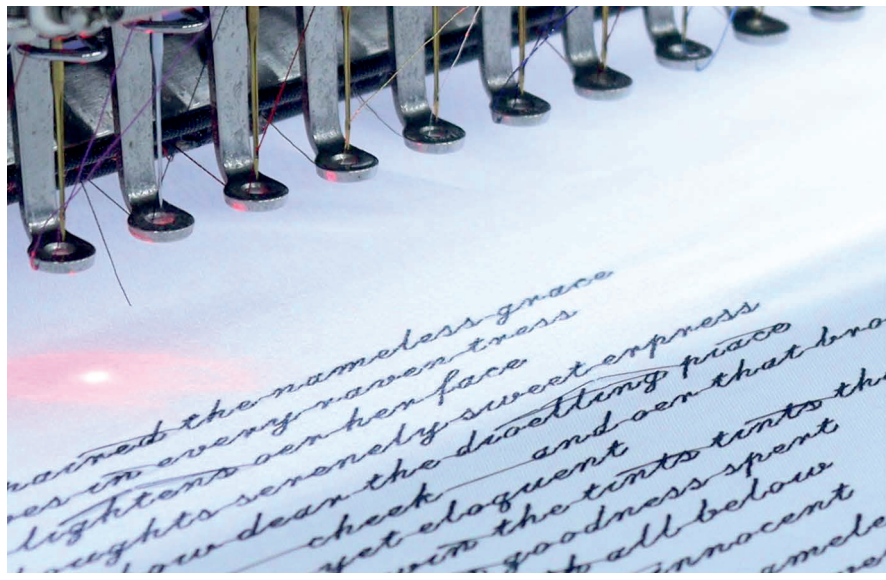 raired the nameless grace
es in every raven tress
lightens oer her face
oughts serenely sweet erpress
low dear the dioelling piace
cheek and oer that bro
yet eloquent
win the tints tints th
goodness spent
all below
innocent
namele